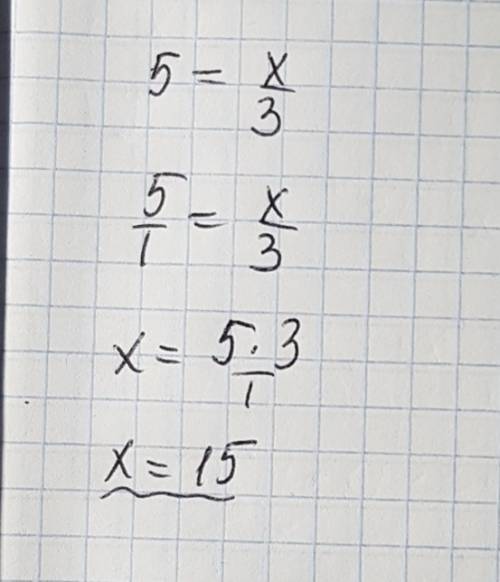 5 = x/3
5/1 = x/3
x = 5·3/1
x = 15